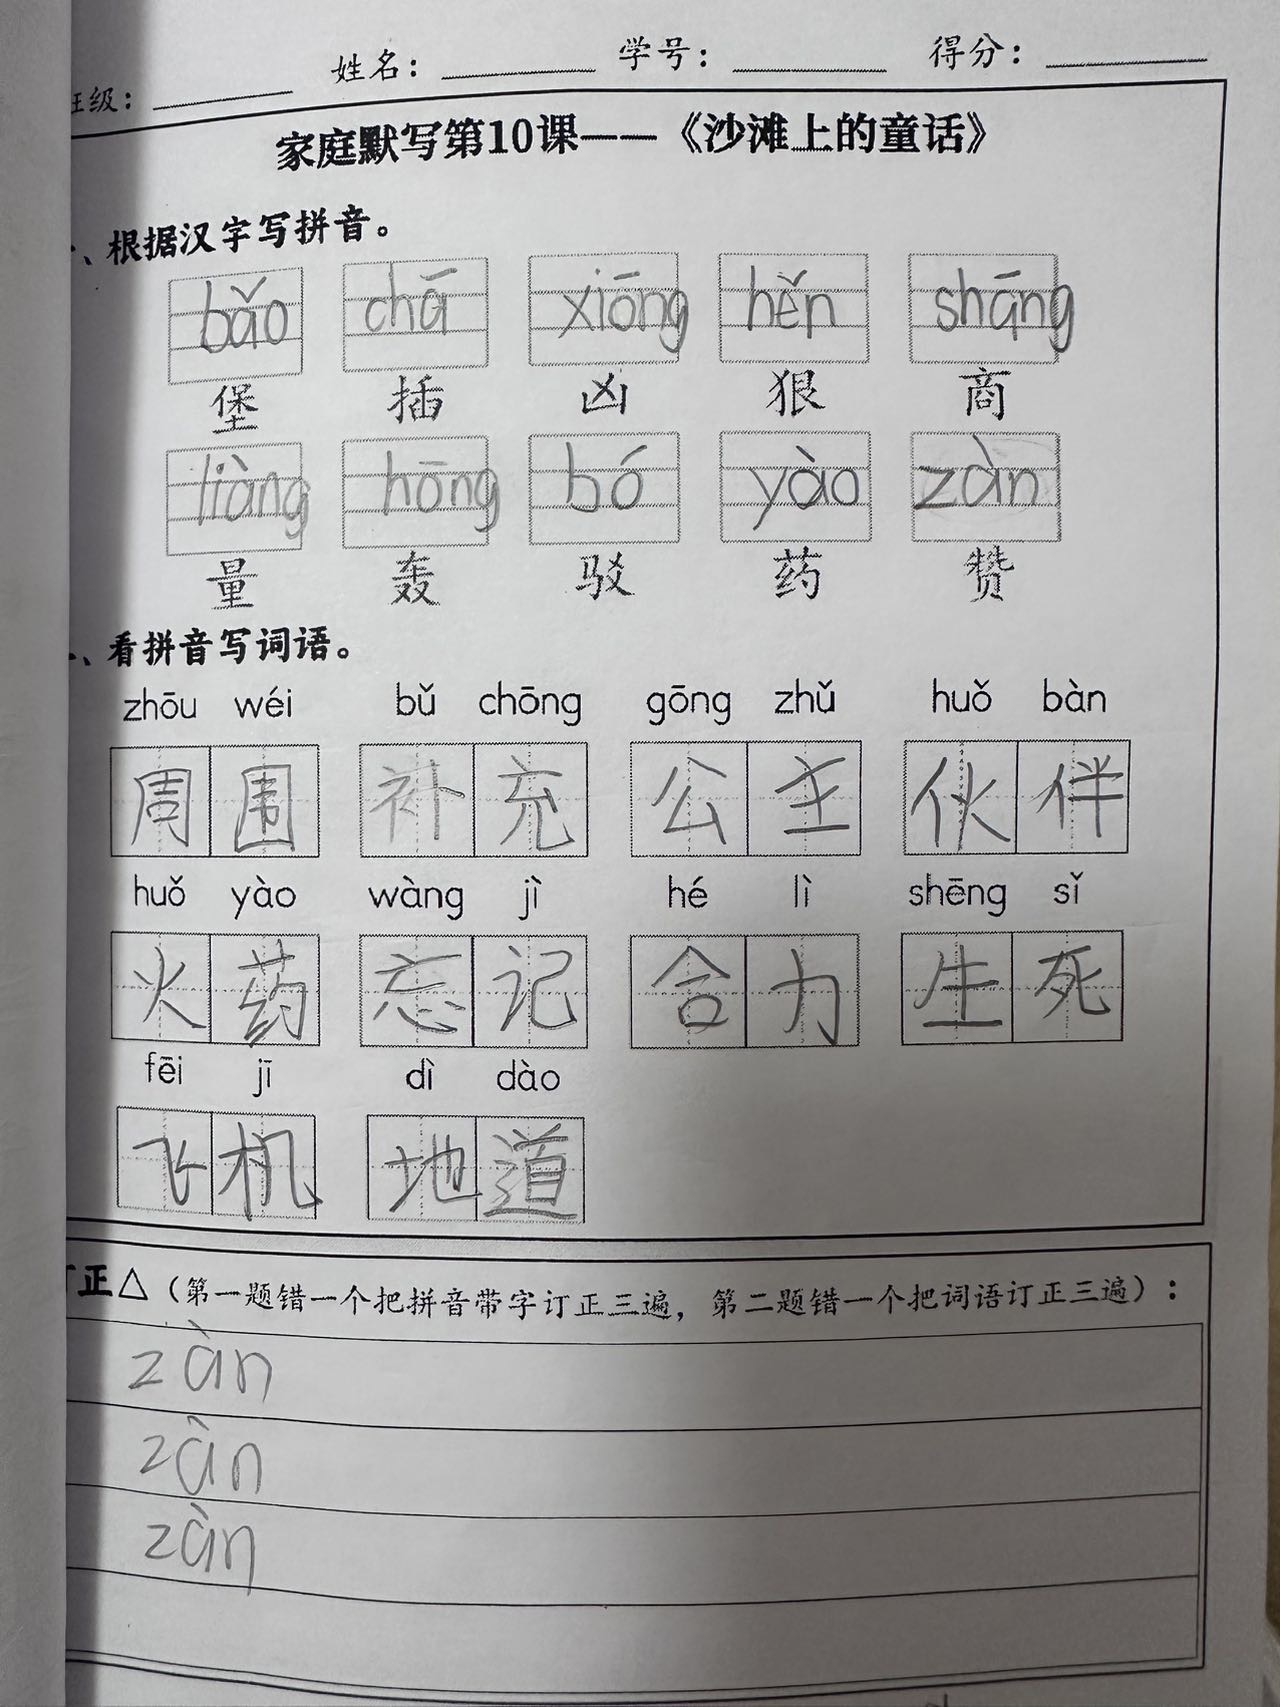 姓名： 学号： 得分：
班级：
家庭默写第10课——《沙滩上的童话》
、根据汉字写拼音。
bǎo chā xiōng hěn shāng
堡 插 凶 狠 商
liàng hōng bó yào zàn
量 轰 驳 药 赞
、看拼音写词语。
zhōu wéi bǔ chōng gōng zhǔ huǒ bàn
周围 补充 公主 伙伴
huǒ yào wàng jì hé lì shēng sǐ
火药 忘记 合力 生死
fēi jī dì dào
飞机 地道
订正△（第一题错一个把拼音带字订正三遍，第二题错一个把词语订正三遍）：
zàn
zàn
zàn